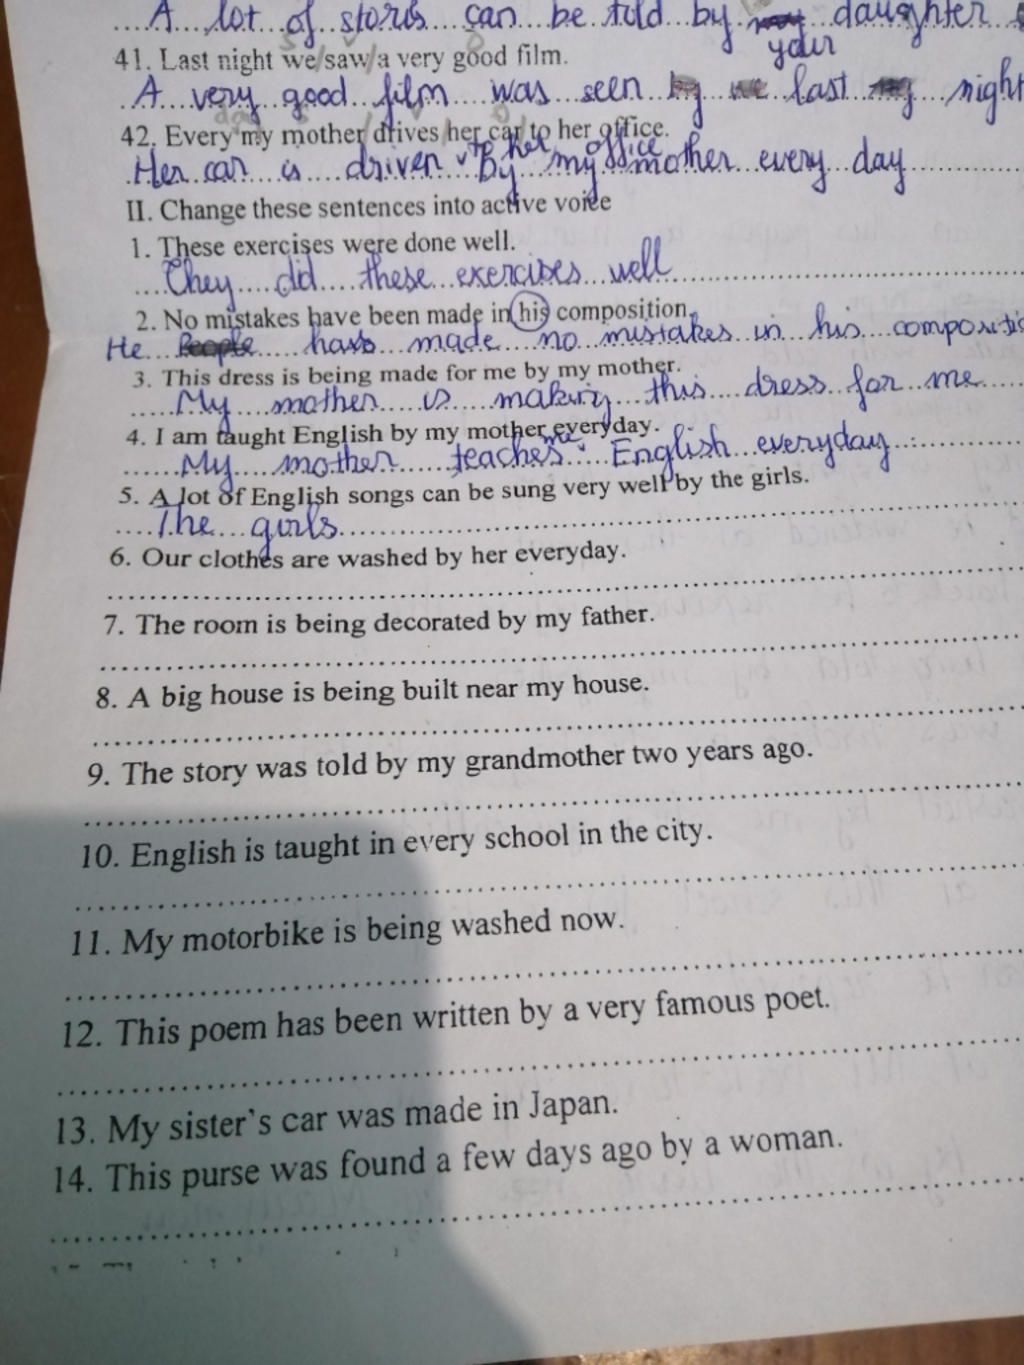 A lot of storis can be told by daughter
your
41. Last night we/saw/a very good film.
A very good film was seen by we last night
42. Every my mother drives her car to her office.
to her office
Her car is driven by my mother every day
II. Change these sentences into active voice
1. These exercises were done well.
They did these exercises well
2. No mistakes have been made in his composition.
He has made no mistakes in his compositio
3. This dress is being made for me by my mother.
My mother is making this dress for me
4. I am taught English by my mother everyday.
me
My mother teaches English everyday
5. A lot of English songs can be sung very well by the girls.
The girls
6. Our clothes are washed by her everyday.
7. The room is being decorated by my father.
8. A big house is being built near my house.
9. The story was told by my grandmother two years ago.
10. English is taught in every school in the city.
11. My motorbike is being washed now.
12. This poem has been written by a very famous poet.
13. My sister's car was made in Japan.
14. This purse was found a few days ago by a woman.